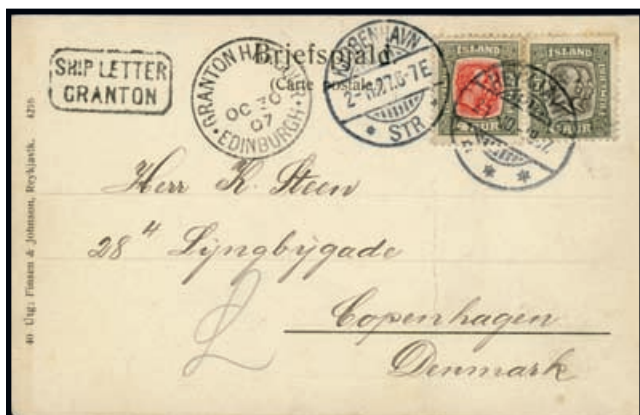 SHIP LETTER
GRANTON
GRANTON HARBOUR
OC 30
07
EDINBURGH
Briefspjald.
(Carte postale.)
KJØBENHAVN
STR
ÍSLAND
AUR
ÍSLAND
AUR
Herr K. Steen
28⁴ Lyngbygade
Copenhagen
Denmark
40 Utg: Finsen & Johnson, Reykjavik. 4256